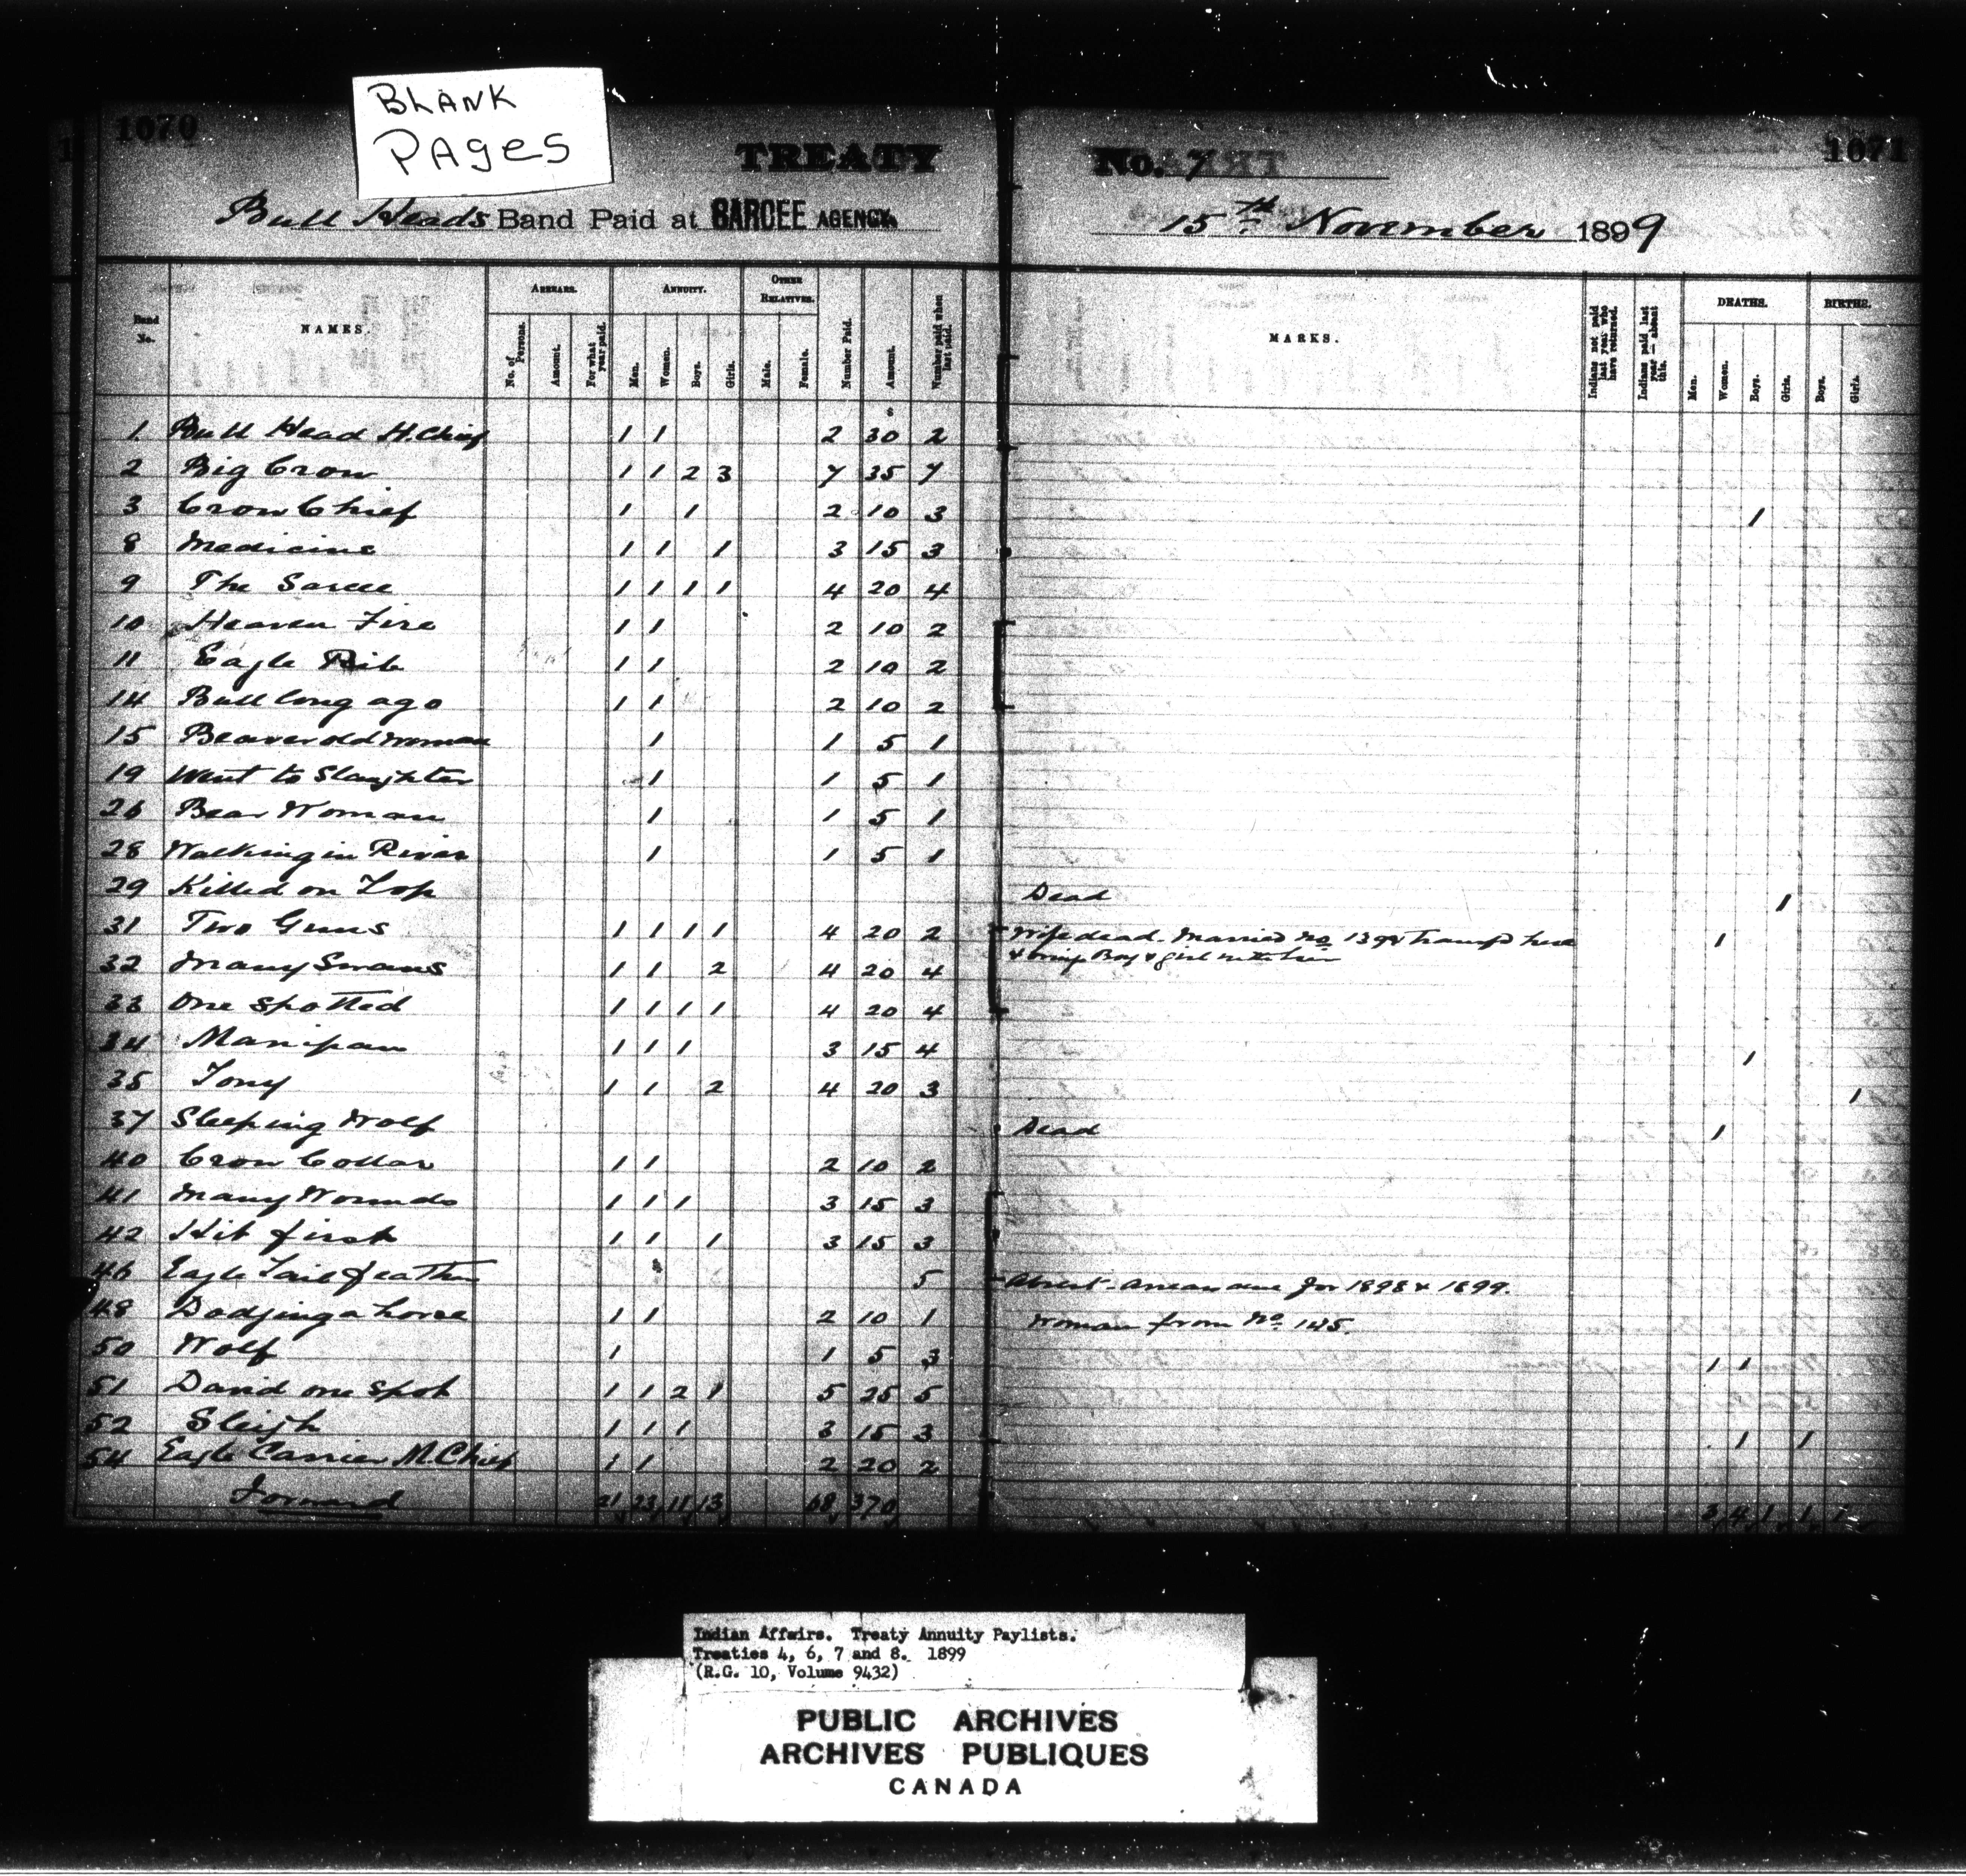 BLANK
PAGES
1070
1071
TREATY No. 7
Bull Heads Band Paid at SARCEE AGENCY. 15th November 1899
Band No. NAMES. ARREARS. ANNUITY. OTHER RELATIVES. Number Paid. Amount. Number paid when last paid. MARKS. Indians not paid last year who have returned. Indians paid last year—absent this. DEATHS. BIRTHS.
No. of Persons. Amount. For what year paid. Men. Women. Boys. Girls. Male. Female. Men. Women. Boys. Girls. Boys. Girls.
1 Bull Head H. Chief 1 1 2 30 2
2 Big Crow 1 1 2 3 7 35 7
3 Crow Chief 1 1 2 10 3 1
8 Medicine 1 1 1 3 15 3
9 The Sarcee 1 1 1 1 4 20 4
10 Heaven Fire 1 1 2 10 2
11 Eagle Rib 1 1 2 10 2
14 Bull long ago 1 1 2 10 2
15 Beaver old woman 1 1 5 1
19 Went to Slaughter 1 1 5 1
26 Bear Woman 1 1 5 1
28 Walking in River 1 1 5 1
29 Killed on Top Dead 1
31 Two Guns 1 1 1 1 4 20 2 Wife dead. Married No 139 & 1
& Boy & girl with her
32 Many Swans 1 1 2 4 20 4
33 One Spotted 1 1 1 1 4 20 4
34 Manipan 1 1 1 3 15 4 1
35 Tony 1 1 2 4 20 3 1
37 Sleeping Wolf Dead 1
40 Crow Collar 1 1 2 10 2
41 Many Wounds 1 1 1 3 15 3
42 Hit first 1 1 1 3 15 3
46 Eagle Tail feather 5 Absent. Arrears due for 1898 & 1899.
48 Dodging a horse 1 1 2 10 1 Woman from No. 145.
50 Wolf 1 1 5 3 1 1
51 David one spot 1 1 2 1 5 25 5
52 Sleigh 1 1 1 3 15 3 1 1
54 Eagle Carrier M. Chief 1 1 2 20 2
Forward 21 23 11 13 68 370 3 4 1 1 1
Indian Affairs. Treaty Annuity Paylists.
Treaties 4, 6, 7 and 8. 1899
(R.G. 10, Volume 9432)
PUBLIC ARCHIVES
ARCHIVES PUBLIQUES
CANADA